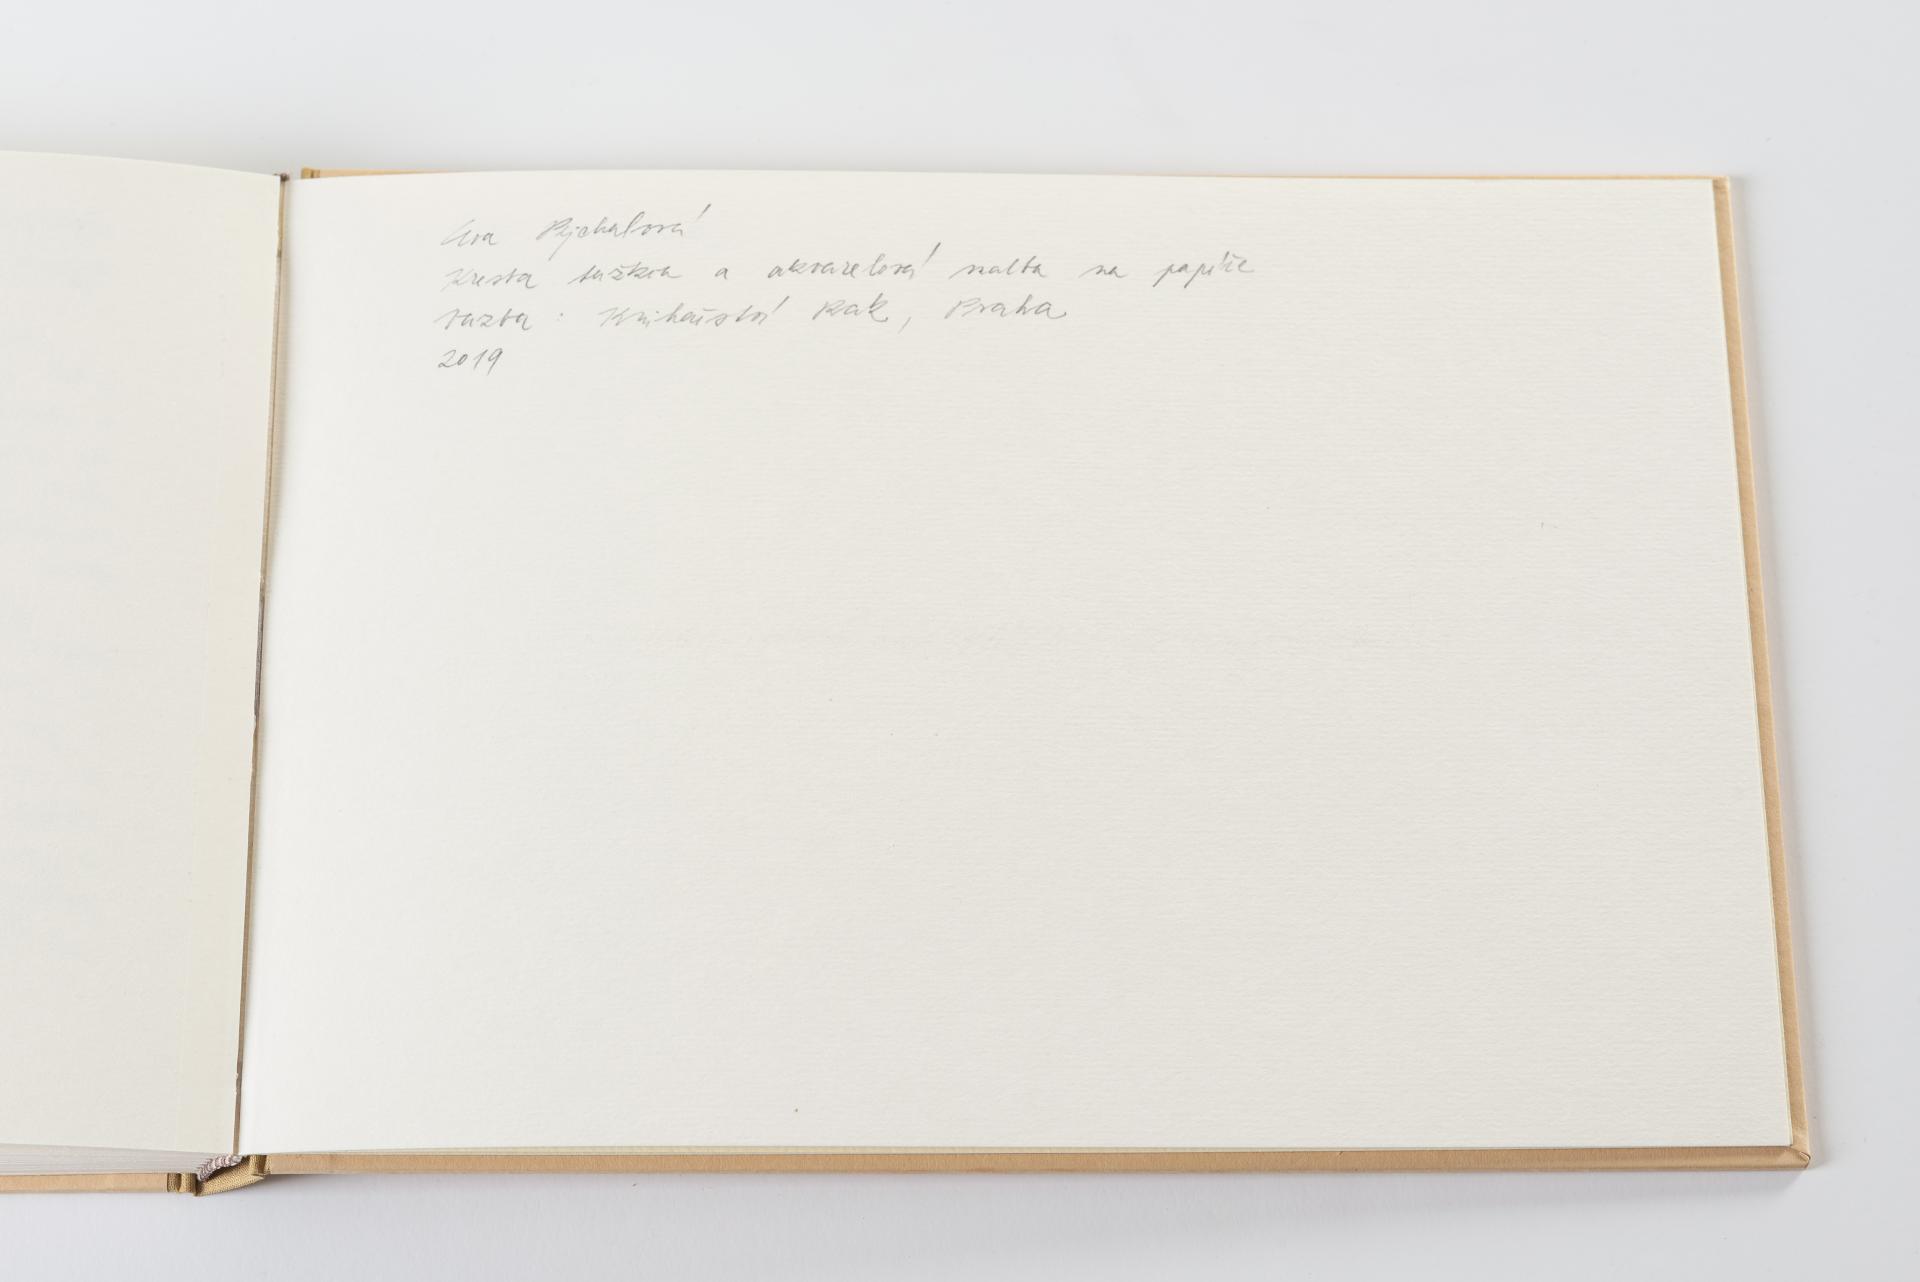 Eva Pýchalová
Kresba tužkou a akvarelová malba na papíře
vazba : Knihařství Rak, Praha
2019